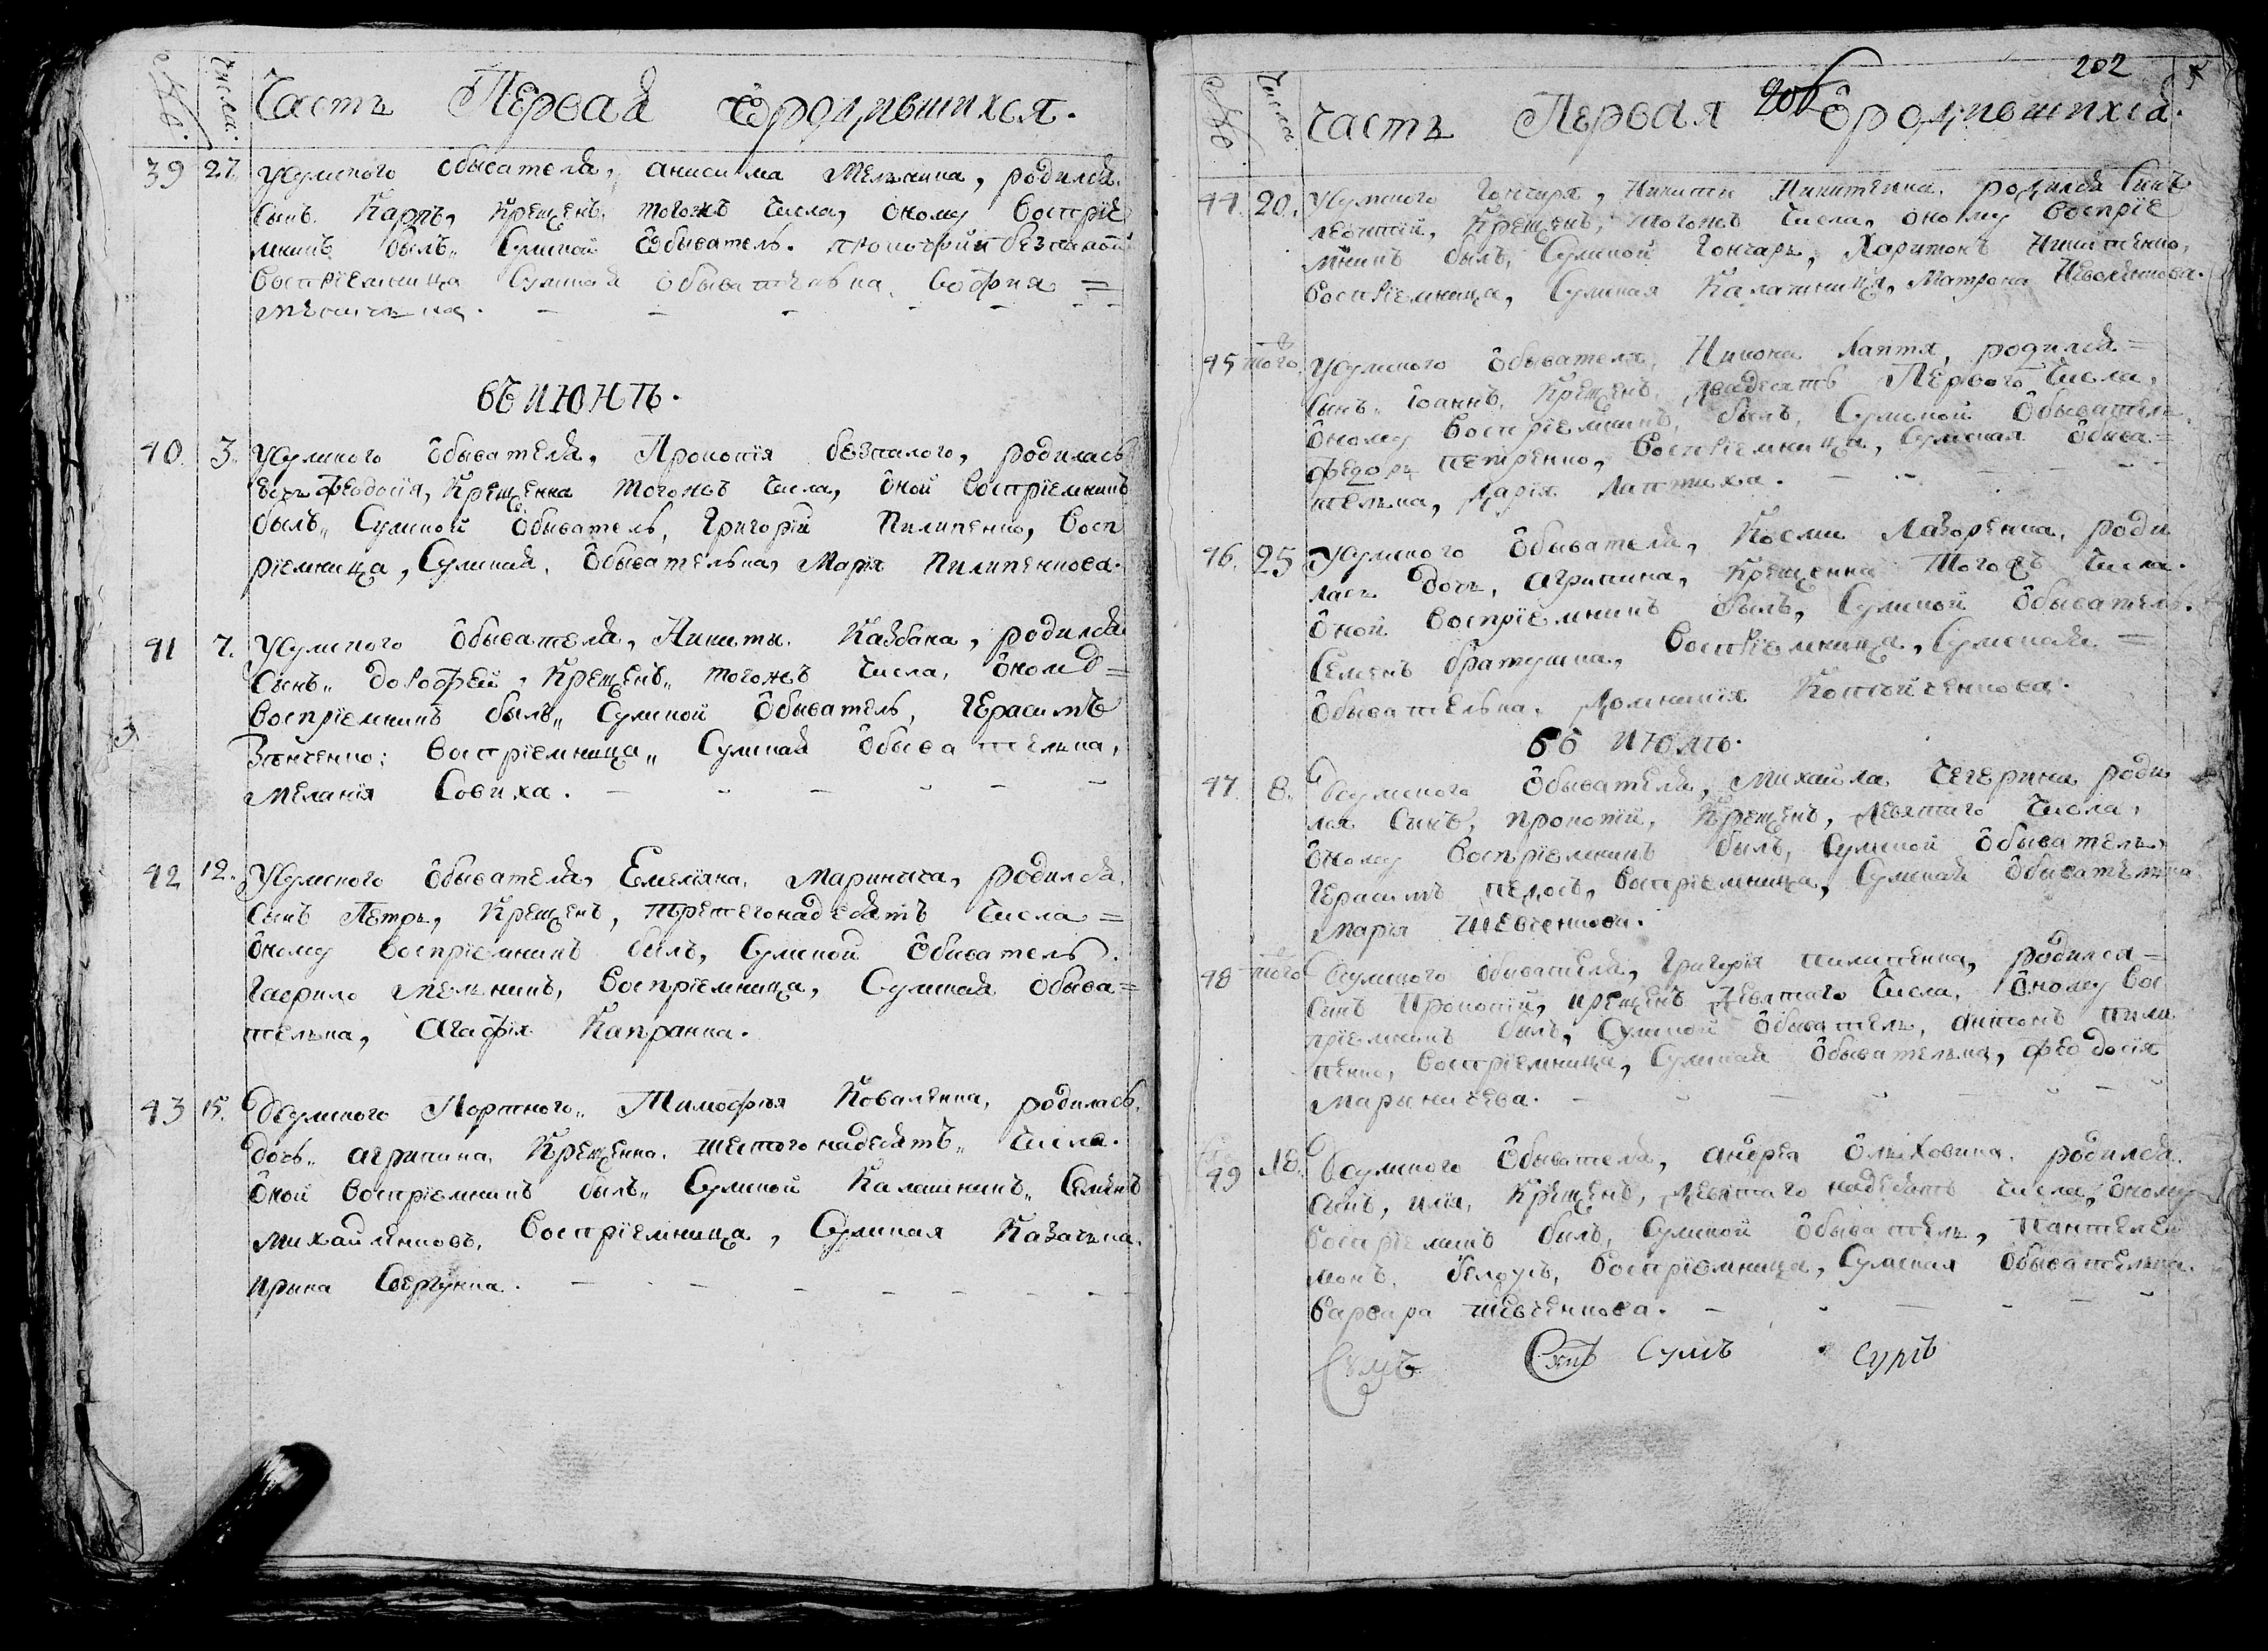 №
Числа.
Часть Первая ѡродившихся.
39 27. Усумского обывателя, анисима мельника, родился.
Сынъ. Карпъ, крещенъ. тогожъ числа, оному восприе
мникъ былъ,, Сумской ѡбыватель. прокофий безпалой
восприемница Сумская обывателька. софия =
въ июнѣ.
40. 3. Усумского обывателя, Прокопія безпалого, родилась
дочь феодосія, крещенна тогожъ числа, оной восприемникъ
былъ,, Сумской обыватель, Григорій Пилипенко, Восп
риемница, Сумская, обывателька, Марія Пилипенкова.
41 7. Усумского обывателя, Никиты. Кайбака, родился
Сынъ,, дорофей, крещенъ,, тогожъ числа, оному =
восприемникъ былъ,, Сумской обыватель, Герасимъ
Зѣнченко: восприемница,, Сумская обывателька,
Меланія Совиха.
42 12. Усумского обывателя, Емеліана. Маринича, родился,
Сынъ Петръ, крещенъ, третегонадесять числа =
оному восприемникъ былъ, Сумской обыватель.
Гаврило мельникъ, восприемница, Сумская обыва =
телька, агафія Капранка.
43 15. Усумского Портного,, Тимофѣя Коваленка, родилась,
дочь,, агрипина, крещенна. шестогонадесять,, числа.
оной восприемникъ былъ,, Сумской Калашникъ,, Семенъ
михайленковъ, восприемница, Сумская Казачька.
ирина Сергунка.
202
206
№
Числа
Часть Первая ѡродившихся.
44. 20. Усумского Гончара, Никити Никитенка. родился Сынъ
леонтій, крещенъ, тогожъ числа, оному восприе
мникъ былъ, Сумской гончаръ, Харитонъ Никитенко,
восприемница, Сумская Калачница, Матрона
45 того. Усумского обывателя, Никона Лаптя, родился =
Сынъ,, іоаннъ, крещенъ, двадесять Первого числа,
оному восприемникъ, былъ, Сумской обыватель
федоръ петренко, восприемница, Сумская обыва =
телька, дарія Лаптиха.
46. 25 Усумского обывателя, Косми Лазоренка, роди
лась дочь, агрипина, крещенна тогожъ числа.
оной восприемникъ былъ, Сумской обыватель.
Семенъ братушка, восприемница, Сумская =
обывателька, Домникія
въ июлѣ.
47. 8. Усумского обывателя, михайла Чегерина роди
лся Сынъ, прокопій, крещенъ, девятаго числа,
оному восприемникъ былъ, Сумской обыватель,
Герасимъ восприемница, Сумская обывателька
Марія Шевченкова.
48 того Усумского обывателя, Григорія пилипенка, родился =
Сынъ Прокопій, крещенъ девятаго числа, оному вос
приемникъ былъ, Сумской обыватель, антонъ пили
пенко, восприемница, Сумская обывателька, феодосія
Мариничева.
49 18. Усумского обывателя, андрея Ольховика. родился
Сынъ, илія, крещенъ, девятаго надесять числа, оному
восприемникъ былъ, Сумской обыватель, пантелей
монъ. белоусъ, восприемница, Сумская обывателька.
варвара шевченкова.
Сумъ